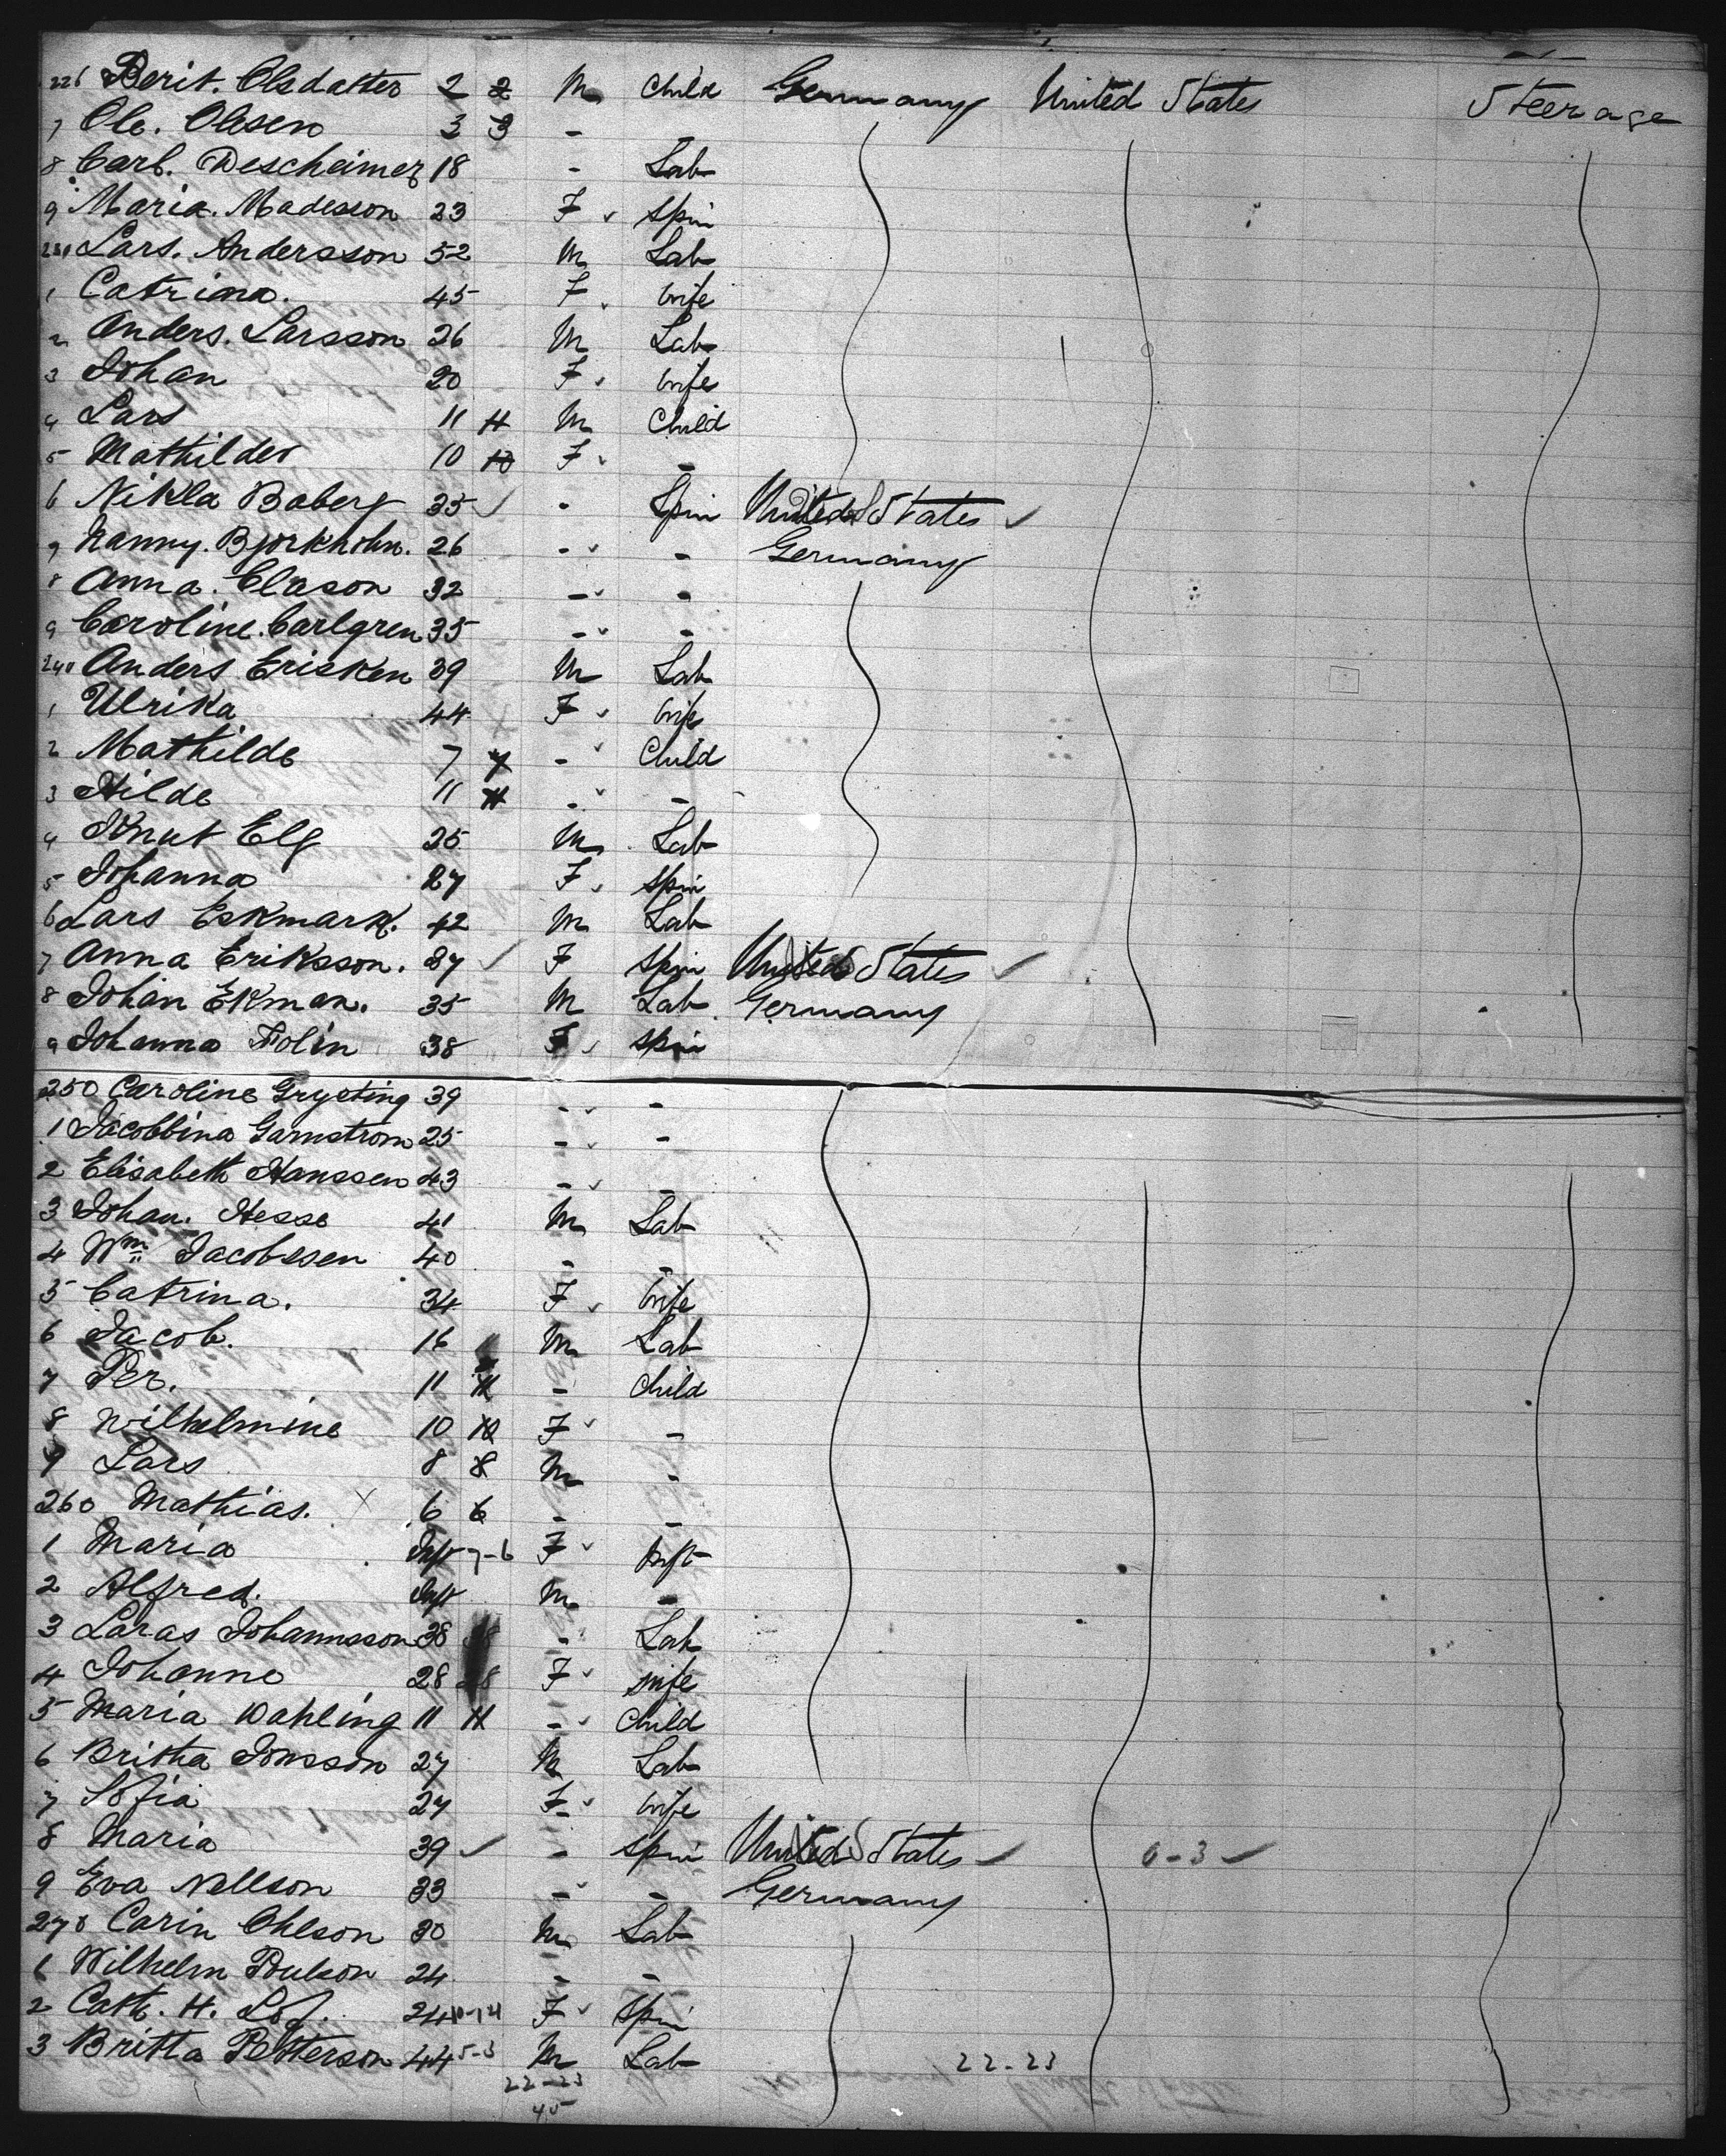 226 Berit. Olsdatter 2 2 M Child Germany United States Steerage
7 Ole. Olesen 3 3 -
8 Carl. Descheimer 18 - Lab
9 Maria. Madesson 23 F spin
230 Lars. Andersson 52 M Lab
1 Catrina. 45 F wife
2 Anders. Larsson 26 M Lab
3 Johan 20 F wife
4 Lars 11 11 M Child
5 Mathilder 10 10 F -
6 Nikla Boberg 35 ✓ - Spin United States ✓
7 Nanny. Bjorkholm. 26 - - Germany
8 Anna. Clason 32 - -
9 Caroline. Carlgren 35 - -
240 Anders Erisken 39 M Lab
1 Ulrika 44 F wife
2 Mathilde 7 7 - Child
3 Hilde 11 11 - -
4 Knut Elg 25 M Lab
5 Johanna 27 F spin
6 Lars Eskmark. 42 M Lab
7 Anna Eriksson. 37 ✓ F spin United States ✓
8 Johan Ekman. 35 M Lab Germany
9 Johanna Folin 38 F spin
250 Caroline Grysting 39 - -
1 Jacobbina Garnstrom 25 - -
2 Elisabeth Hanssen 43 - -
3 Johan. Hesse 41 M Lab
4 Wm Jacobssen 40 - -
5 Catrina. 34 F wife
6 Jacob. 16 M Lab
7 Per. 11 11 - Child
8 Wilhelmine 10 10 F -
9 Lars 8 8 M -
260 Mathias. X 6 6 - -
1 Maria Inft 7-6 F Inft
2 Alfred. Inft M -
3 Laras Johannsson 38 38 - Lab
4 Johanne 28 28 F wife
5 Maria Wahling 11 11 - Child
6 Britha Jonsson 27 M Lab
7 Sofia 27 F wife
8 Maria 39 ✓ - Spin United States ✓ 0-3 ✓
9 Eva Nellson 33 - - Germany
270 Carin Ohlson 30 M Lab
1 Wilhelm Poulson 24 - -
2 Cath. H. Lof. 24 10-14 F Spin
3 Britta Petterson 44 5-3 M Lab 22-23
22-23
45